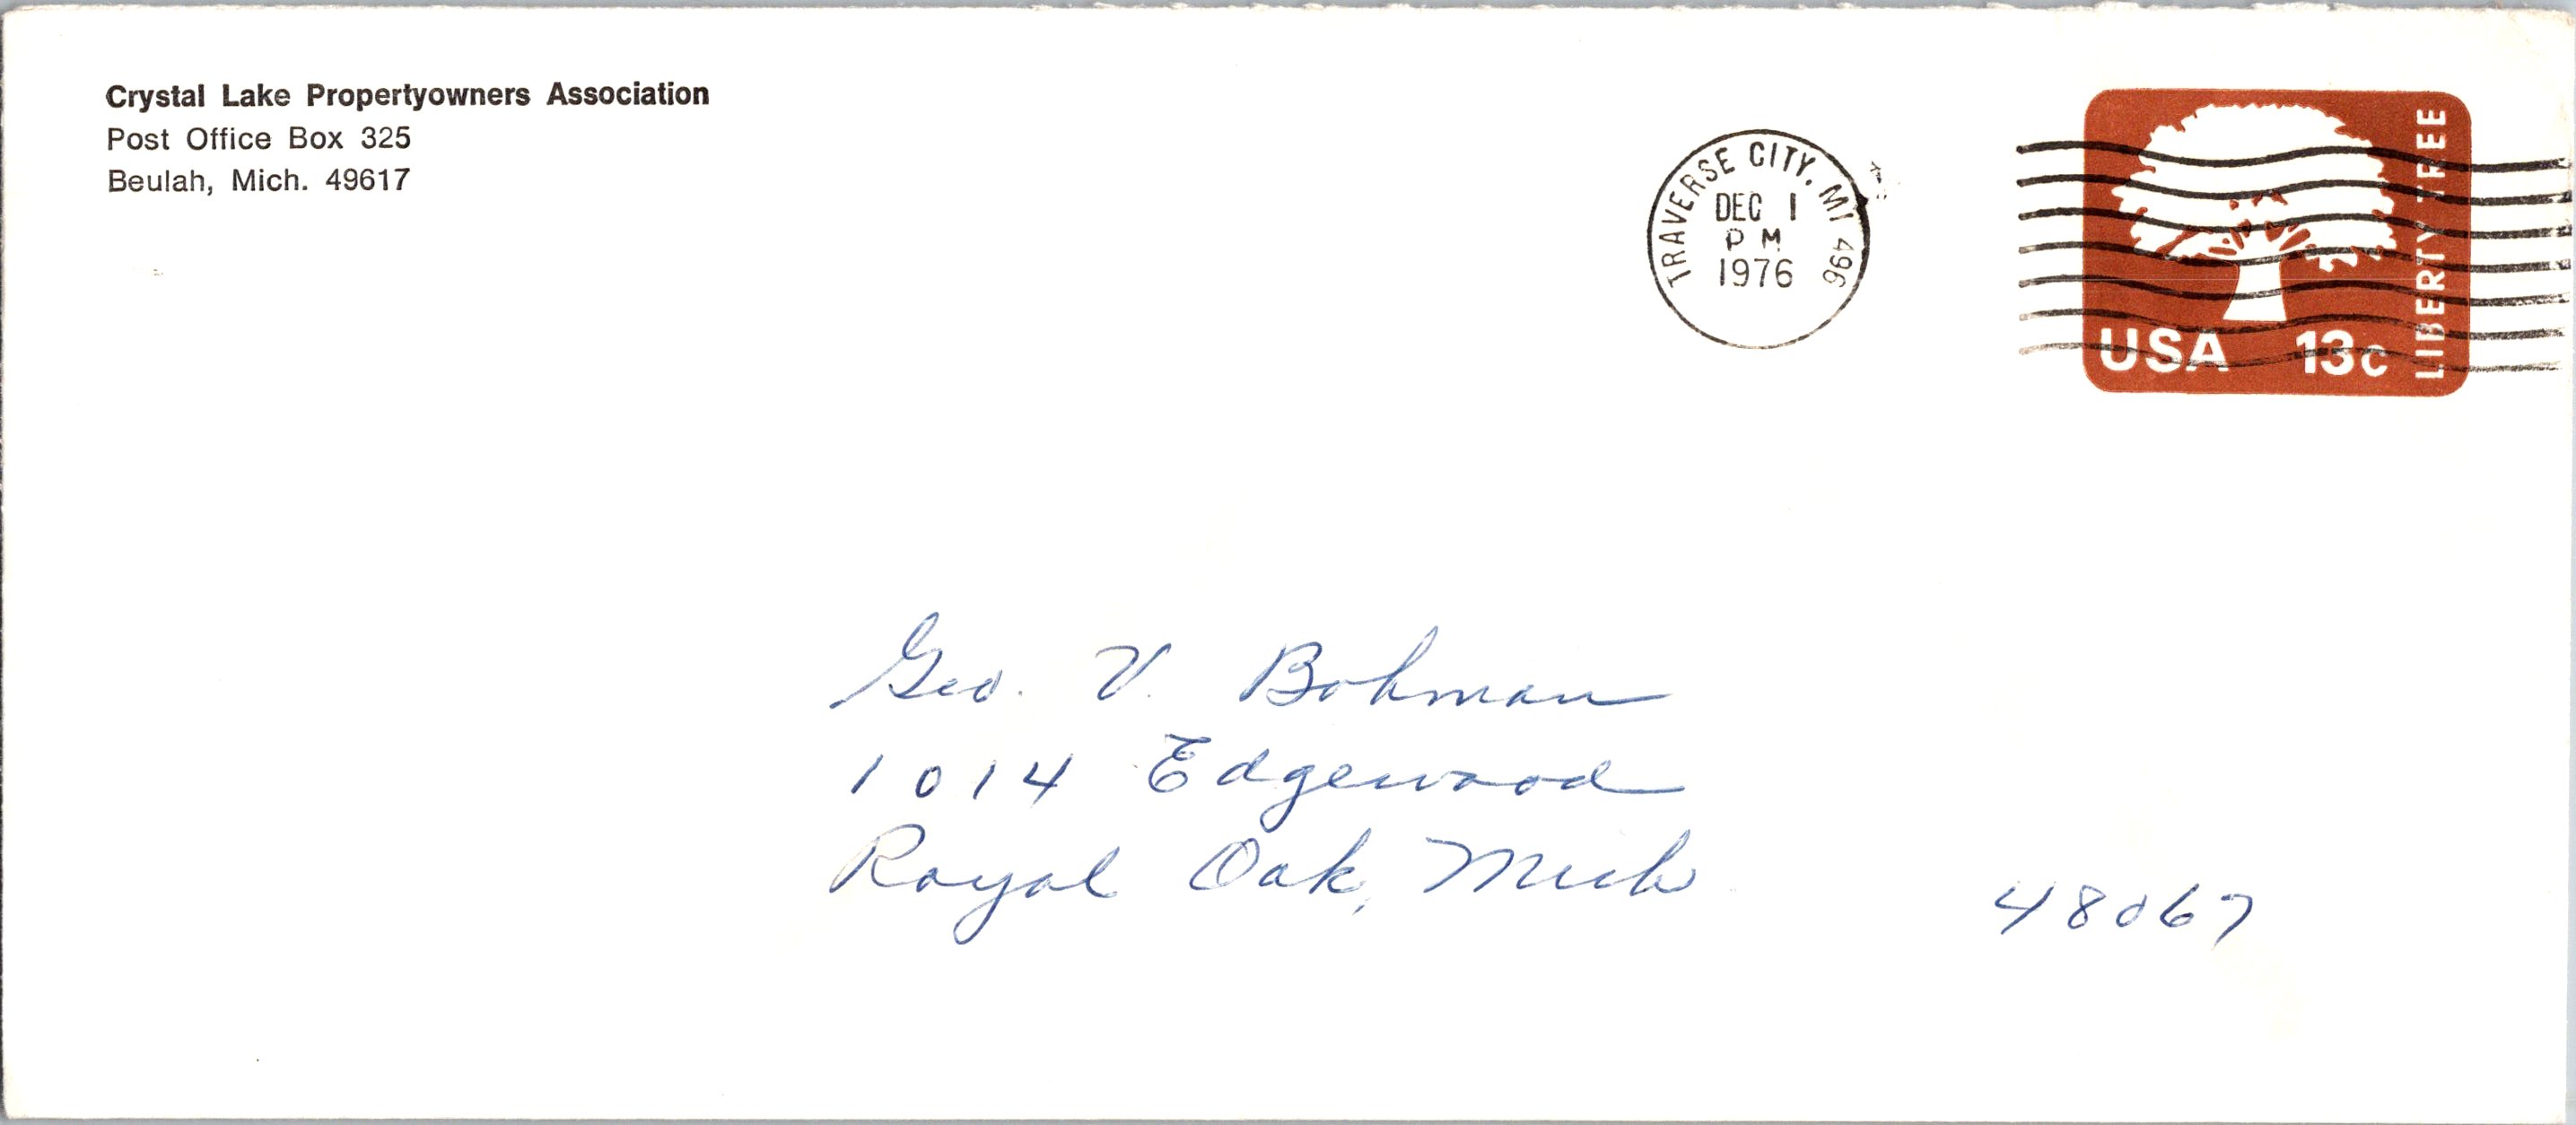 Crystal Lake Propertyowners Association
Post Office Box 325
Beulah, Mich. 49617
TRAVERSE CITY, MI 496
DEC 1
PM
1976
LIBERTY TREE
USA 13c
Geo. V. Bohman
1014 Edgewood
Royal Oak, Mich
48067